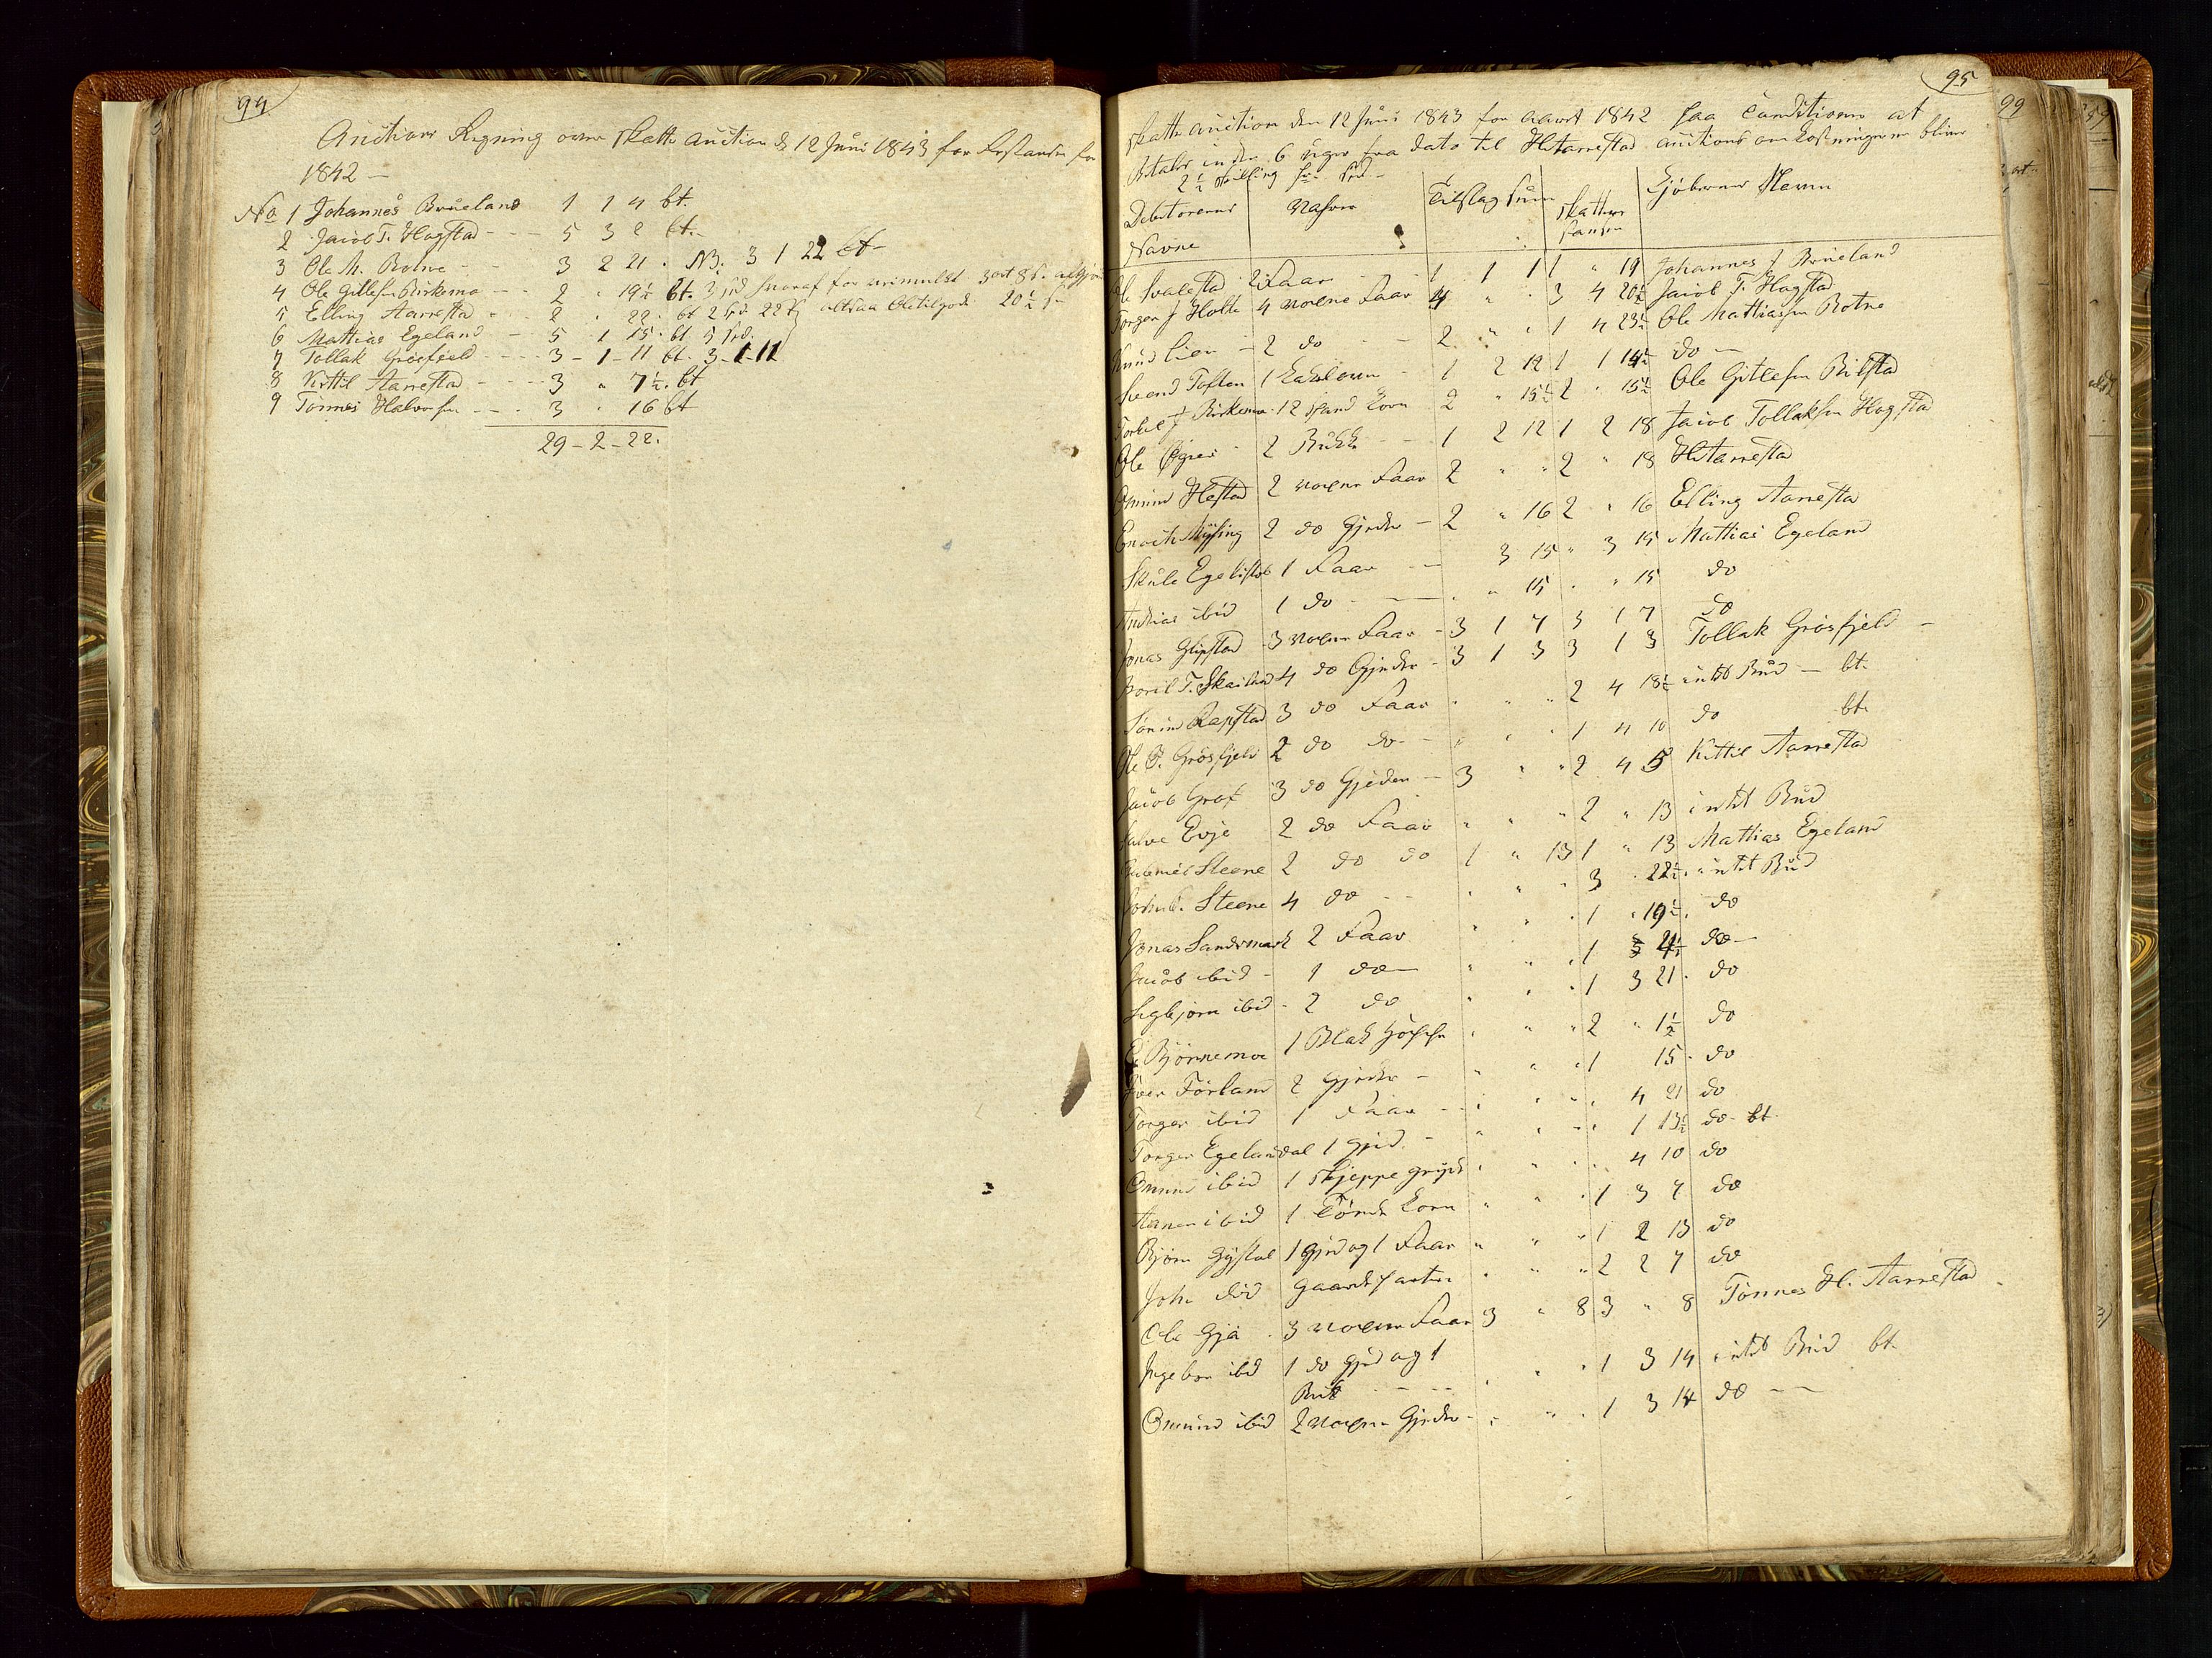 94
Auctions Regning over Skatte Auction d 12 Juni 1843 for Restancen for
1842 —
No 1 Johannes Brueland 1 1 4 bt.
2 Jacob T. Hogstad - - - 5 3 2 bt.
3 Ole M. Rotne - - 3 2 21 . NB: 3 1 22 bt
4 Ole Gitlesen Birkemo - - 2 " 19½ bt. 3
5 Elling Aarrestad - 2 " 22 . bt 2 Spd 22 altsaa tilgode 20½
6 Mattias Egeland - - 5 1 15 . bt 5 Spd.
7 Tollak Grøsfjeld - - - - 3 - 1 - 11 bt. 3-1-11
8 Kittil Aarrestad - - - - 3 " 7½ . bt
9 Tønnes Halvorsen - - . 3 " 16 bt
29 - 2 - 22.
95
Skatte Auction den 12 Juni 1843 for Aaret 1842 paa Conditioner at
Betales inden 6 uger fra dato til HAarrestad Auctions omkostningerne bliver
2½ skilling pr. Spd -
Debitorernes Navne
Tilslag Sum
Skatte
Kjøbernes Navn
Ole Svalestad 2 Faar - - 1 1 1 1 " 19 Johannes J Brueland
Torger J Holte 4 voxne Faar 4 " " 3 4 20½ Jacob T. Hogstad
Knud Lien - 2 do - - 2 " " 1 4 23½ Ole Mathiassen Rotne
Svend Toften 1 - 1 2 12 1 1 14½ do —
Torkel J Birkemo 12 Korn 2 " 15½ 2 " 15½ Ole Gitlesen
Ole - 2 Bukke - - 1 2 12 1 2 18 Jacob Tollaksen Hogstad
Omund Hestad 2 voxne Faar 2 " " 2 " 18 HAarrestad
Enoch Myssing 2 do Gjeder - 2 " 16 2 " 16 Elling Aarrestad
Skule Egelistøl 1 Faar - - 3 15 " 3 15 Mattias Egeland
Andrias ibid 1 do - — . " 15 . " 15 do
Jonas Glipstad 3 voxne Faar - 3 1 7 3 1 7 do
T. Skailand 4 do Gjeder - 3 1 3 3 1 3 Tollak Grøsfjeld -
Sørine Rapstad 3 do Faar . " " 2 4 18½ intet Bud — bt.
Ole P. Grøsfjeld 2 do do - - " . " 1 4 10 do bt.
Jacob Grøt 3 do Gjeder - 3 " " 2 4 5 Kittil Aarrestad
Salve Evje 2 do Faar " " " 2 " 13 intet Bud
Steene 2 do do 1 " 13 1 " 13 Mattias Egeland
John Steene 4 do - - . " " 3 . 22½ . intet Bud
Jonas Sandsmark 2 Faar " " . 1 " 19½ . do
Jacob ibid - 1 do — " " . 1 3 4½ do —
Sigbjørn ibid - 2 do " " " 1 3 21 . do
Bjørnemoe 1 Blak . " " 2 " 1½ do
Iver Førland 2 Gjeder - " " " 1 15 . do
Torger ibid 1 Faar - - . " " " 4 21 do
Torger Egelandsdal 1 Gjed . - " " " 1 13½ do - bt
Omund ibid 1 Skjeppe . " . 4 10 do
Aanen ibid 1 Tønde Korn " " . 1 3 7 do
Bjørn Gystøl 1 Gjed og 1 Faar " " " 1 2 13 do
John ibid Gaards . " " 2 2 7 do
Ole Gja . 3 voxne Faar 3 " 8 3 " 8 Tønnes H. Aarrestad
Ingebor ibid 1 do Gjed og 1
Buk - - - . " . 1 3 14 intet Bud bt.
Omund ibid 2 voxne Gjeder - . " . 1 3 14 do - —
99